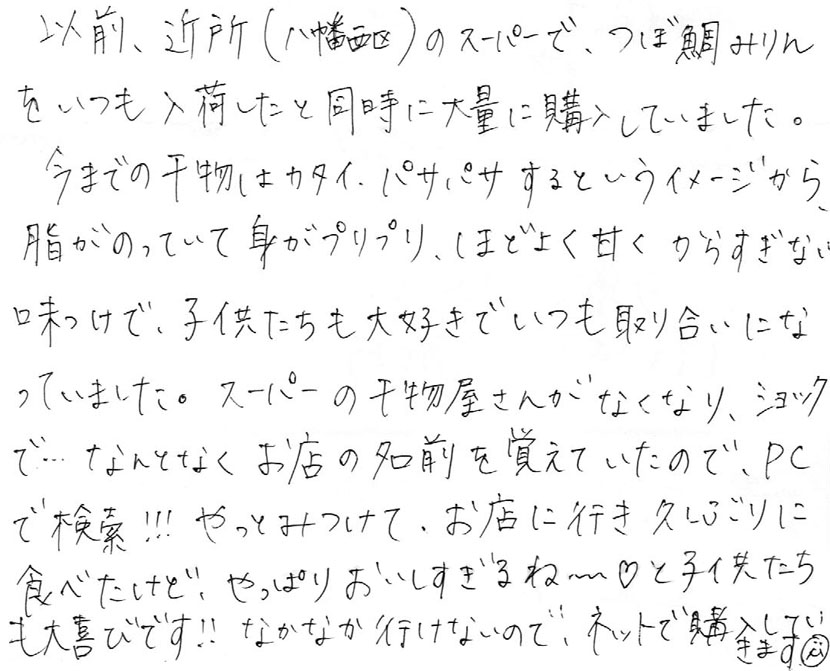 以前、近所(八幡西区)のスーパーで、つぼ鯛みりん
をいつも入荷したと同時に大量に購入していました。
今までの干物はカタイ、パサパサするというイメージから、
脂がのっていて身がプリプリ、ほどよく甘くからすぎない
味つけで、子供たちも大好きでいつも取り合いにな
っていました。スーパーの干物屋さんがなくなり、ショック
で…なんとなくお店の名前を覚えていたので、PC
で検索!!!やっとみつけて、お店に行き久しぶりに
食べたけど、やっぱりおいしすぎるね〜♡と子供たち
も大喜びです!!なかなか行けないので、ネットで購入してい
きます